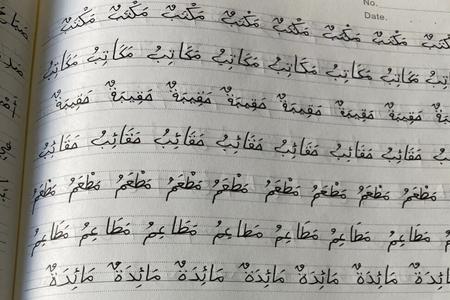 No.
Date.
مَكْتَبٌ مَكْتَبٌ مَكْتَبٌ مَكْتَبٌ مَكْتَبٌ مَكْتَبٌ مَكْتَبٌ مَكْتَبٌ
مَكَاتِبُ مَكَاتِبُ مَكَاتِبُ مَكَاتِبُ مَكَاتِبُ مَكَاتِبُ مَكَاتِبُ
حَقِيبَةٌ حَقِيبَةٌ حَقِيبَةٌ حَقِيبَةٌ حَقِيبَةٌ حَقِيبَةٌ حَقِيبَةٌ
حَقَائِبُ حَقَائِبُ حَقَائِبُ حَقَائِبُ حَقَائِبُ حَقَائِبُ حَقَائِبُ
مَطْعَمٌ مَطْعَمٌ مَطْعَمٌ مَطْعَمٌ مَطْعَمٌ مَطْعَمٌ مَطْعَمٌ مَطْعَمٌ مَطْعَمٌ
مَطَاعِمُ مَطَاعِمُ مَطَاعِمُ مَطَاعِمُ مَطَاعِمُ مَطَاعِمُ مَطَاعِمُ
مَائِدَةٌ مَائِدَةٌ مَائِدَةٌ مَائِدَةٌ مَائِدَةٌ مَائِدَةٌ مَائِدَةٌ